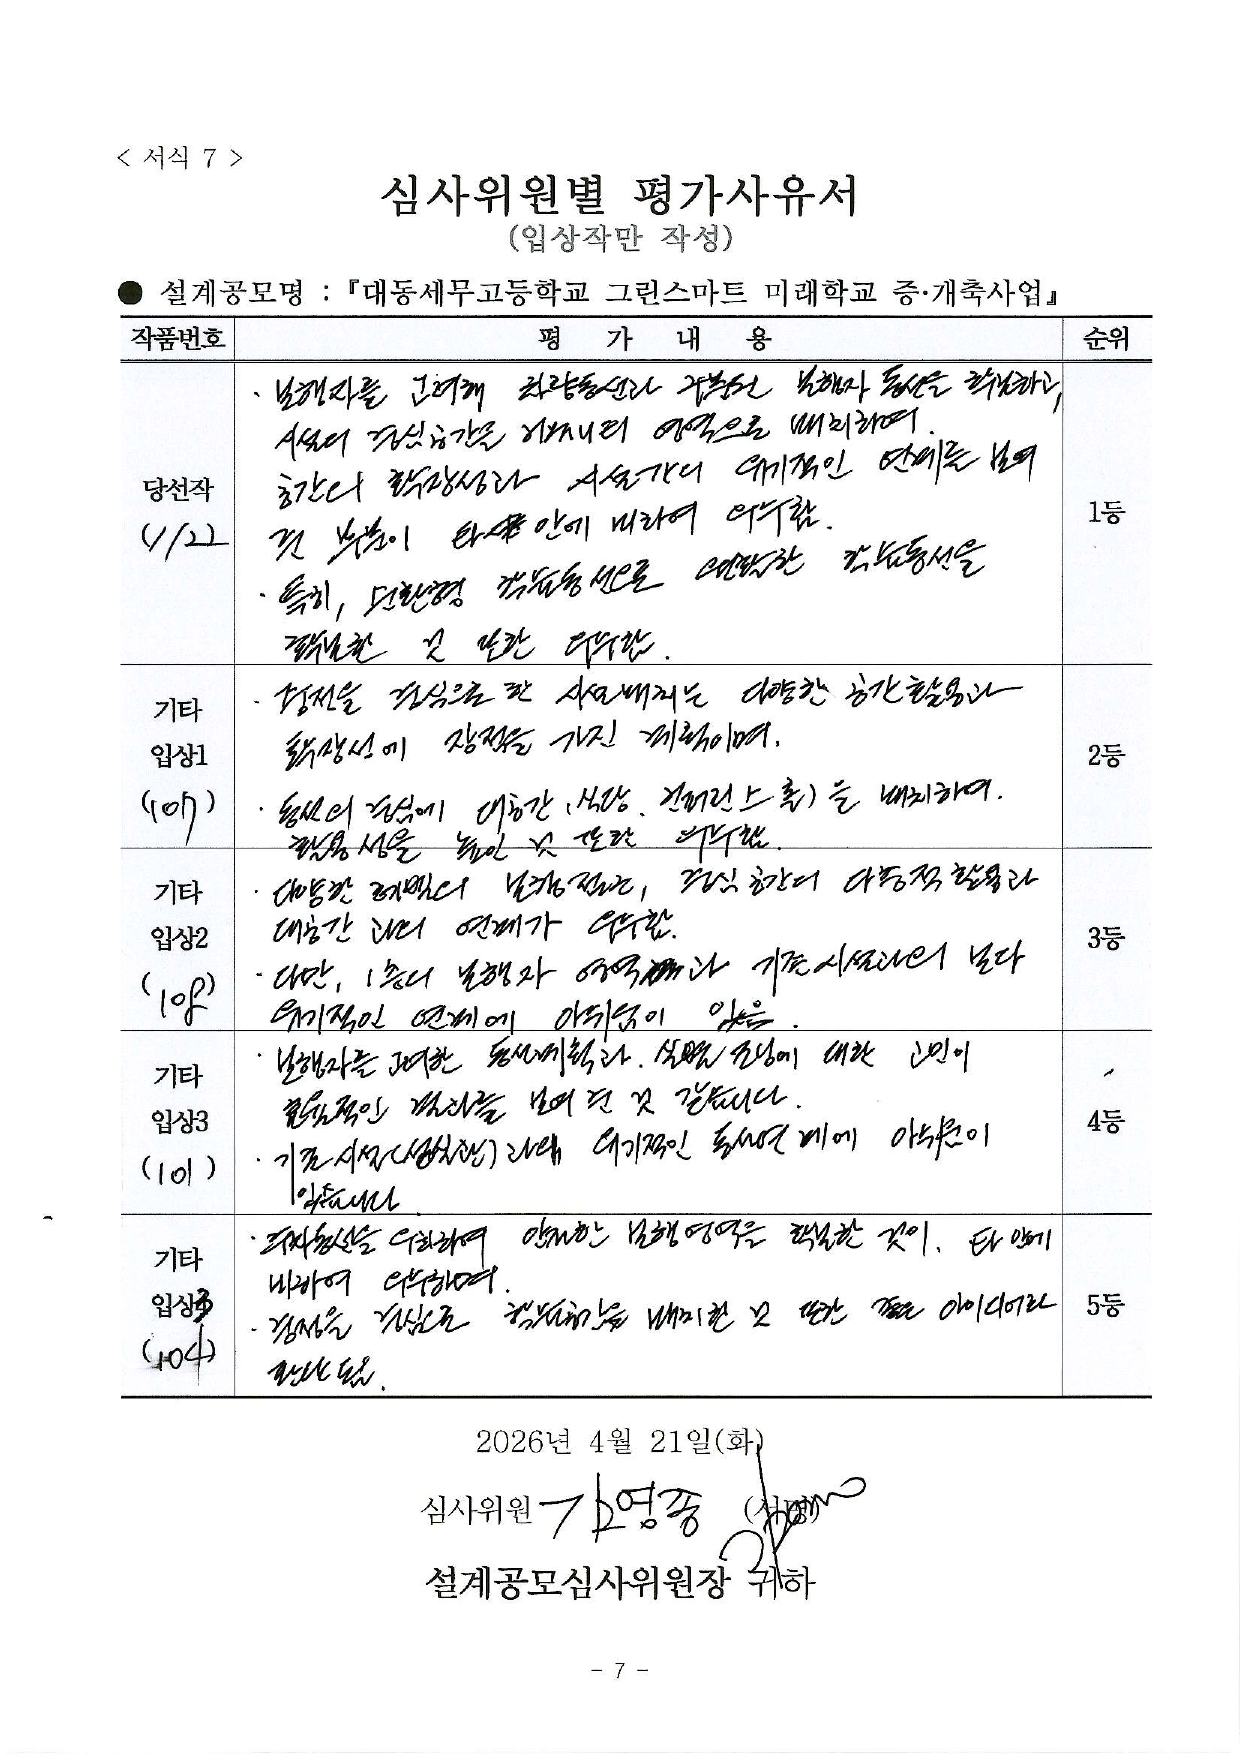 < 서식 7 >
심사위원별 평가사유서
(입상작만 작성)
● 설계공모명 : 『대동세무고등학교 그린스마트 미래학교 증·개축사업』
작품번호 평 가 내 용 순위
· 보행자를 고려해 차량동선과 구분된 보행자 동선을 확보하고,
시설의 중심공간을 커뮤니티 영역으로 배치하여.
당선작 공간의 확장성과 시설간의 유기적인 연계를 보여
1등
준 부분이 타 안에 비하여 우수함.
· 특히, 순환형 학습동선으로 연한 학습동선을
확보한 것 또한 우수함.
기타 · 중정을 중심으로 한 시설배치는 다양한 공간활용과
입상1 확장성에 장점을 가진 계획이며. 2등
(107) · 동선의 중심에 대공간(식당, 컨퍼런스홀)을 배치하여.
활용성을 높인 것 또한 우수함.
기타 · 다양한 레벨의 보행접근, 중심공간의 다목적활용과
입상2 대공간과의 연계가 우수함. 3등
(108) · 다만, 1층의 보행자 영역과 기존시설과의 보다
유기적인 연계에 아쉬움이 있음.
기타 · 보행자를 고려한 동선계획과. 조닝에 대한 고민이
입상3 효율적인 결과를 보여 준 것 같습니다. 4등
(101) · 기존시설(생활관)과의 유기적인 동선연계에 아쉬움이
있습니다
기타 · 동선을 하여 안전한 보행영역을 확보한 것이. 타 안에
비하여 우수하며.
입상 · 중정을 중심으로 학습공간을 배치한 것 또한 좋은 아이디어라 5등
(104) 판단됨.
2026년 4월 21일(화)
심사위원 김영종 (서명)
설계공모심사위원장 귀하
- 7 -